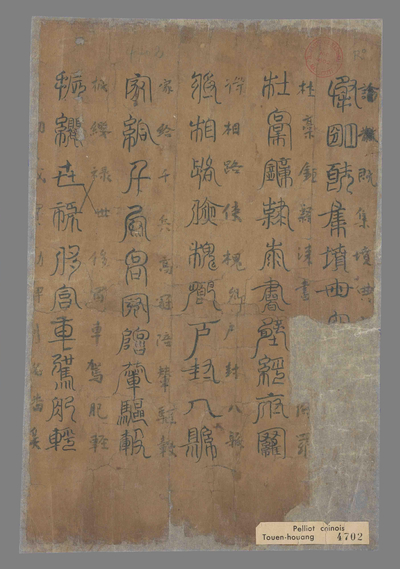 既集墳典
承明既集墳典
杜稾鍾隸漆書
杜稾鍾隸漆書壁經府羅
將相路俠槐卿戶封八縣
將相路俠槐卿戶封八縣
家給千兵高冠陪輦驅轂
家給千兵高冠陪輦驅轂
振纓祿世侈富車駕肥輕
振纓世祿侈富車駕肥輕
Pelliot chinois
Touen-houang 4702